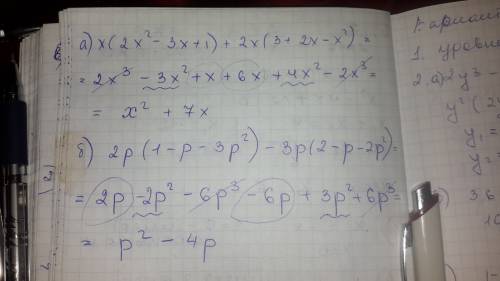 а) x(2x² - 3x + 1) + 2x(3 + 2x - x²) =
= 2x³ - 3x² + x + 6x + 4x² - 2x³ =
= x² + 7x
б) 2p(1 - p - 3p²) - 3p(2 - p - 2p²) =
= 2p - 2p² - 6p³ - 6p + 3p² + 6p³ =
= p² - 4p
1. уровень
2. а) 2y³ -
y² (2
y =
y =
36